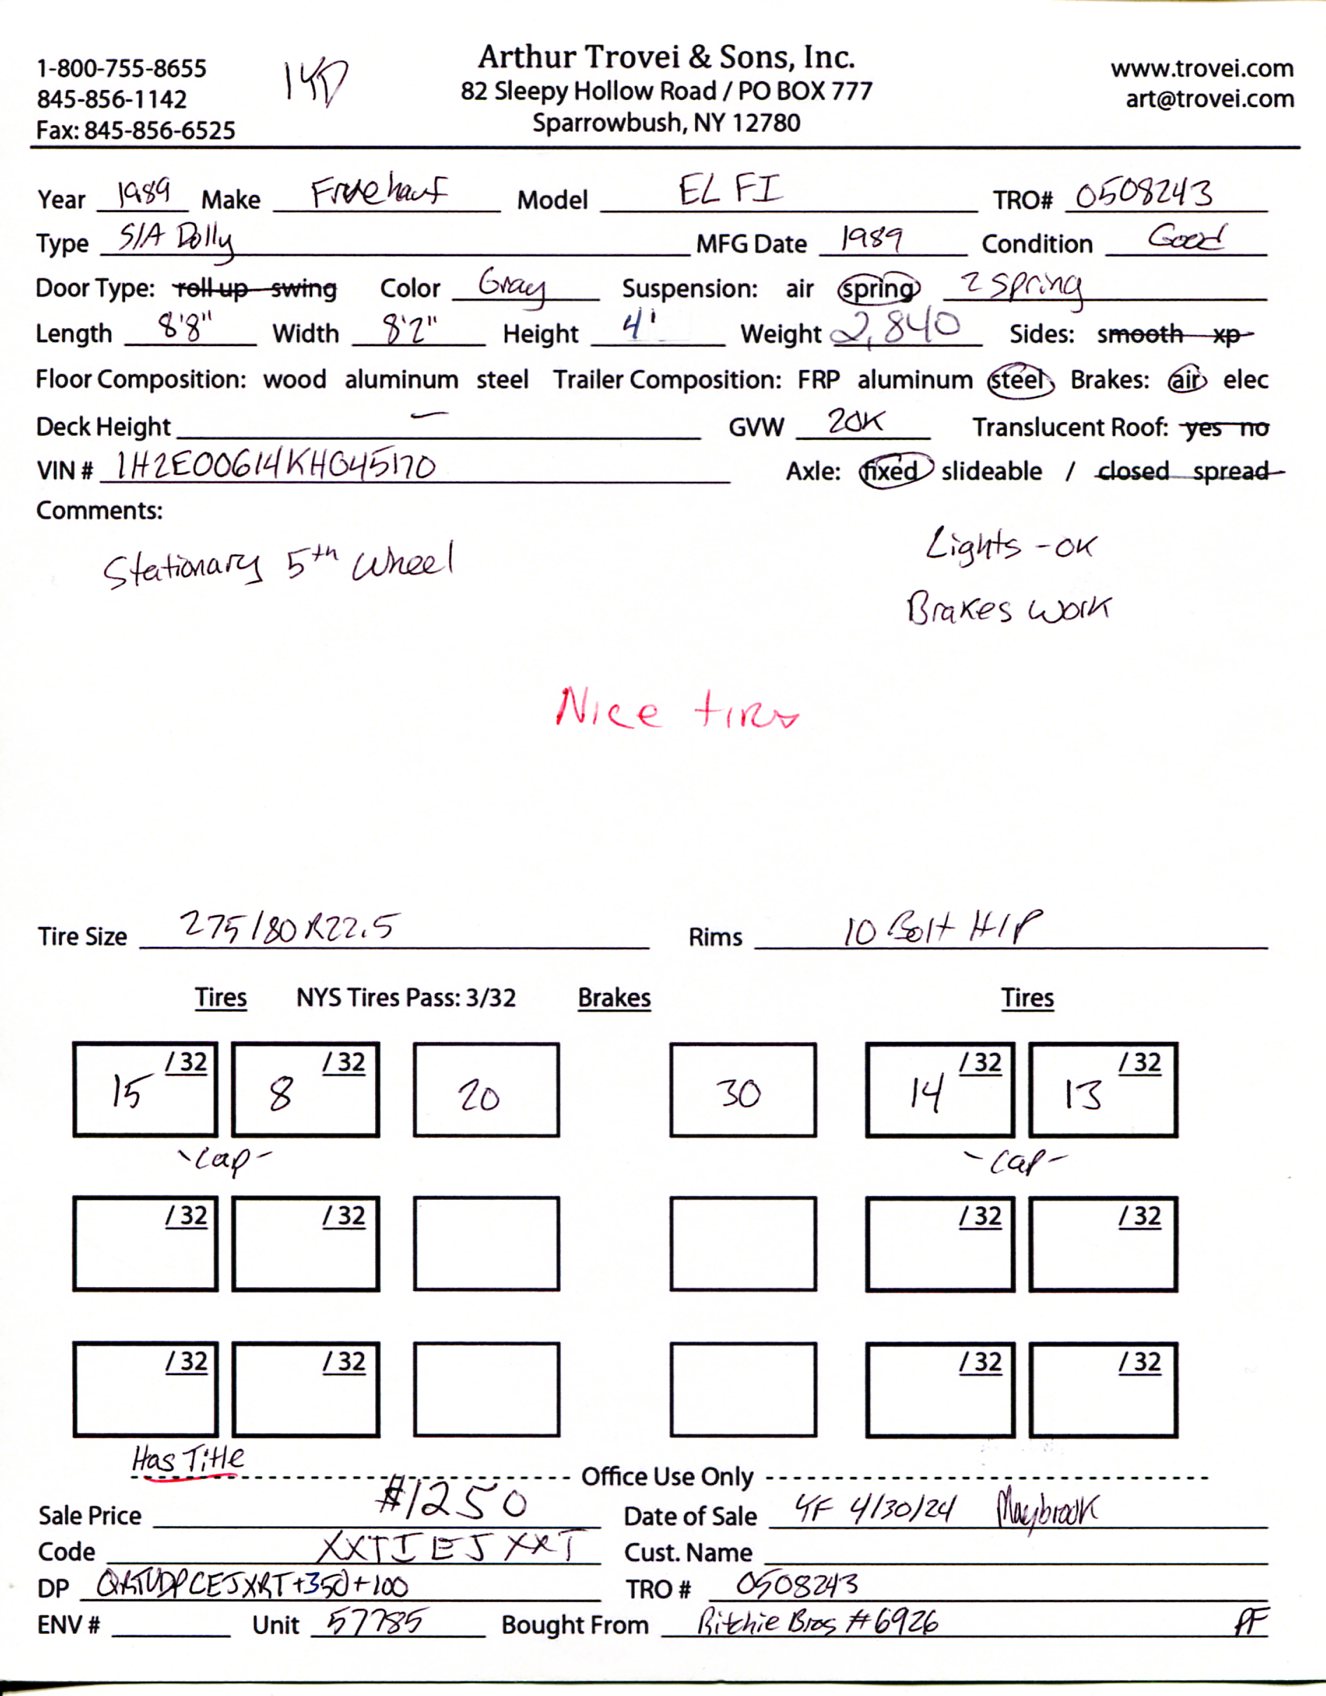 1-800-755-8655
845-856-1142
Fax: 845-856-6525
Arthur Trovei & Sons, Inc.
82 Sleepy Hollow Road / PO BOX 777
Sparrowbush, NY 12780
www.trovei.com
art@trovei.com
Year 1989 Make Fruehauf Model ELFI TRO# 0508243
Type S/A Dolly MFG Date 1989 Condition Good
Door Type: roll up swing Color Gray Suspension: air spring 2 spring
Length 8'8" Width 8'2" Height 4' Weight 2,840 Sides: smooth xp
Floor Composition: wood aluminum steel Trailer Composition: FRP aluminum steel Brakes: air elec
Deck Height — GVW 20K Translucent Roof: yes no
VIN # 1H2E00614KH045170 Axle: fixed slideable / closed spread
Comments:
Stationary 5th Wheel
Lights - OK
Brakes Work
Nice tires
Tire Size 275/80R22.5 Rims 10 Bolt H/P
Tires NYS Tires Pass: 3/32 Brakes Tires
15 /32 8 /32 20 30 14 /32 13 /32
-Cap- -Cap-
/32 /32 /32 /32
/32 /32 /32 /32
Has Title
Office Use Only
Sale Price $1250 Date of Sale YF 4/30/24 Maybrook
Code XXTIEJXRT Cust. Name
DP +350+100 TRO # 0508243
ENV # Unit 57785 Bought From Ritchie Bros #6926 PF